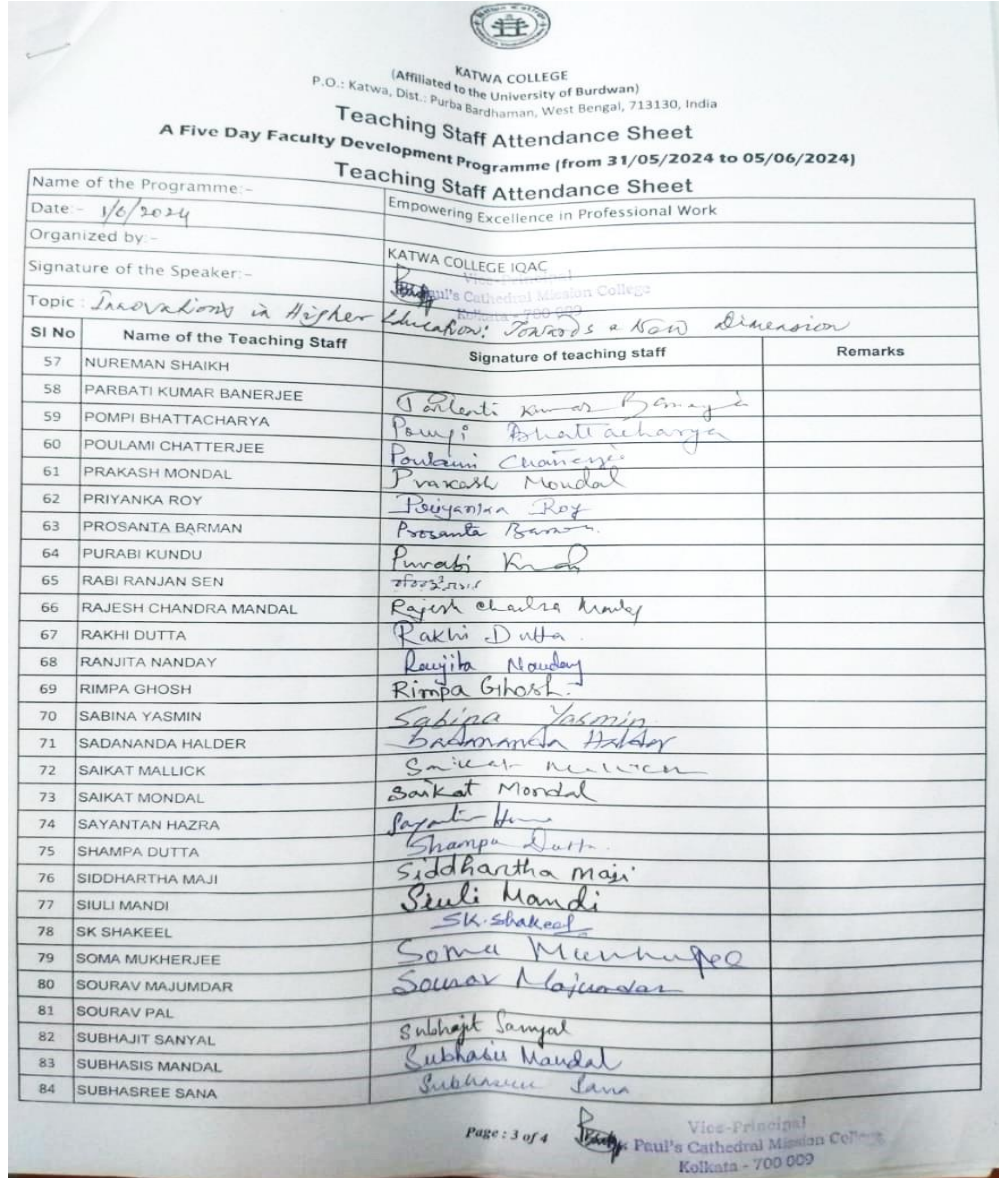 KATWA COLLEGE
(Affiliated to the University of Burdwan)
P.O.: Katwa, Dist.: Purba Bardhaman, West Bengal, 713130, India
Teaching Staff Attendance Sheet
A Five Day Faculty Development Programme (from 31/05/2024 to 05/06/2024)
Teaching Staff Attendance Sheet
Name of the Programme:- Empowering Excellence in Professional Work
Date:- 1/6/2024
Organized by:- KATWA COLLEGE IQAC
Signature of the Speaker:-
Vice-Principal
Paul's Cathedral Mission College
Kolkata - 700 009
Topic : Innovations in Higher Education: Towards a New Dimension
Sl No Name of the Teaching Staff Signature of teaching staff Remarks
57 NUREMAN SHAIKH
58 PARBATI KUMAR BANERJEE Kumar
59 POMPI BHATTACHARYA Pompi Bhattacharya
60 POULAMI CHATTERJEE Poulami Chatterjee
61 PRAKASH MONDAL Prakash Mondal
62 PRIYANKA ROY Priyanka Roy
63 PROSANTA BARMAN Prosanta Barman
64 PURABI KUNDU Purabi
65 RABI RANJAN SEN
66 RAJESH CHANDRA MANDAL Rajesh Chandra Mandal
67 RAKHI DUTTA Rakhi Dutta
68 RANJITA NANDAY Ranjita Nanday
69 RIMPA GHOSH Rimpa Ghosh.
70 SABINA YASMIN Sabina Yasmin
71 SADANANDA HALDER Sadananda Halder
72 SAIKAT MALLICK Saikat Mallick
73 SAIKAT MONDAL Saikat Mondal
74 SAYANTAN HAZRA
75 SHAMPA DUTTA Shampa Dutta
76 SIDDHARTHA MAJI Siddhartha Maji
77 SIULI MANDI Siuli Mandi
78 SK SHAKEEL SK. Shakeel
79 SOMA MUKHERJEE Soma Mukherjee
80 SOURAV MAJUMDAR Sourav Majumdar
81 SOURAV PAL
82 SUBHAJIT SANYAL Subhajit Sanyal
83 SUBHASIS MANDAL Subhasis Mandal
84 SUBHASREE SANA Subhasree Sana
Page : 3 of 4
Vice-Principal
Paul's Cathedral Mission College
Kolkata - 700 009